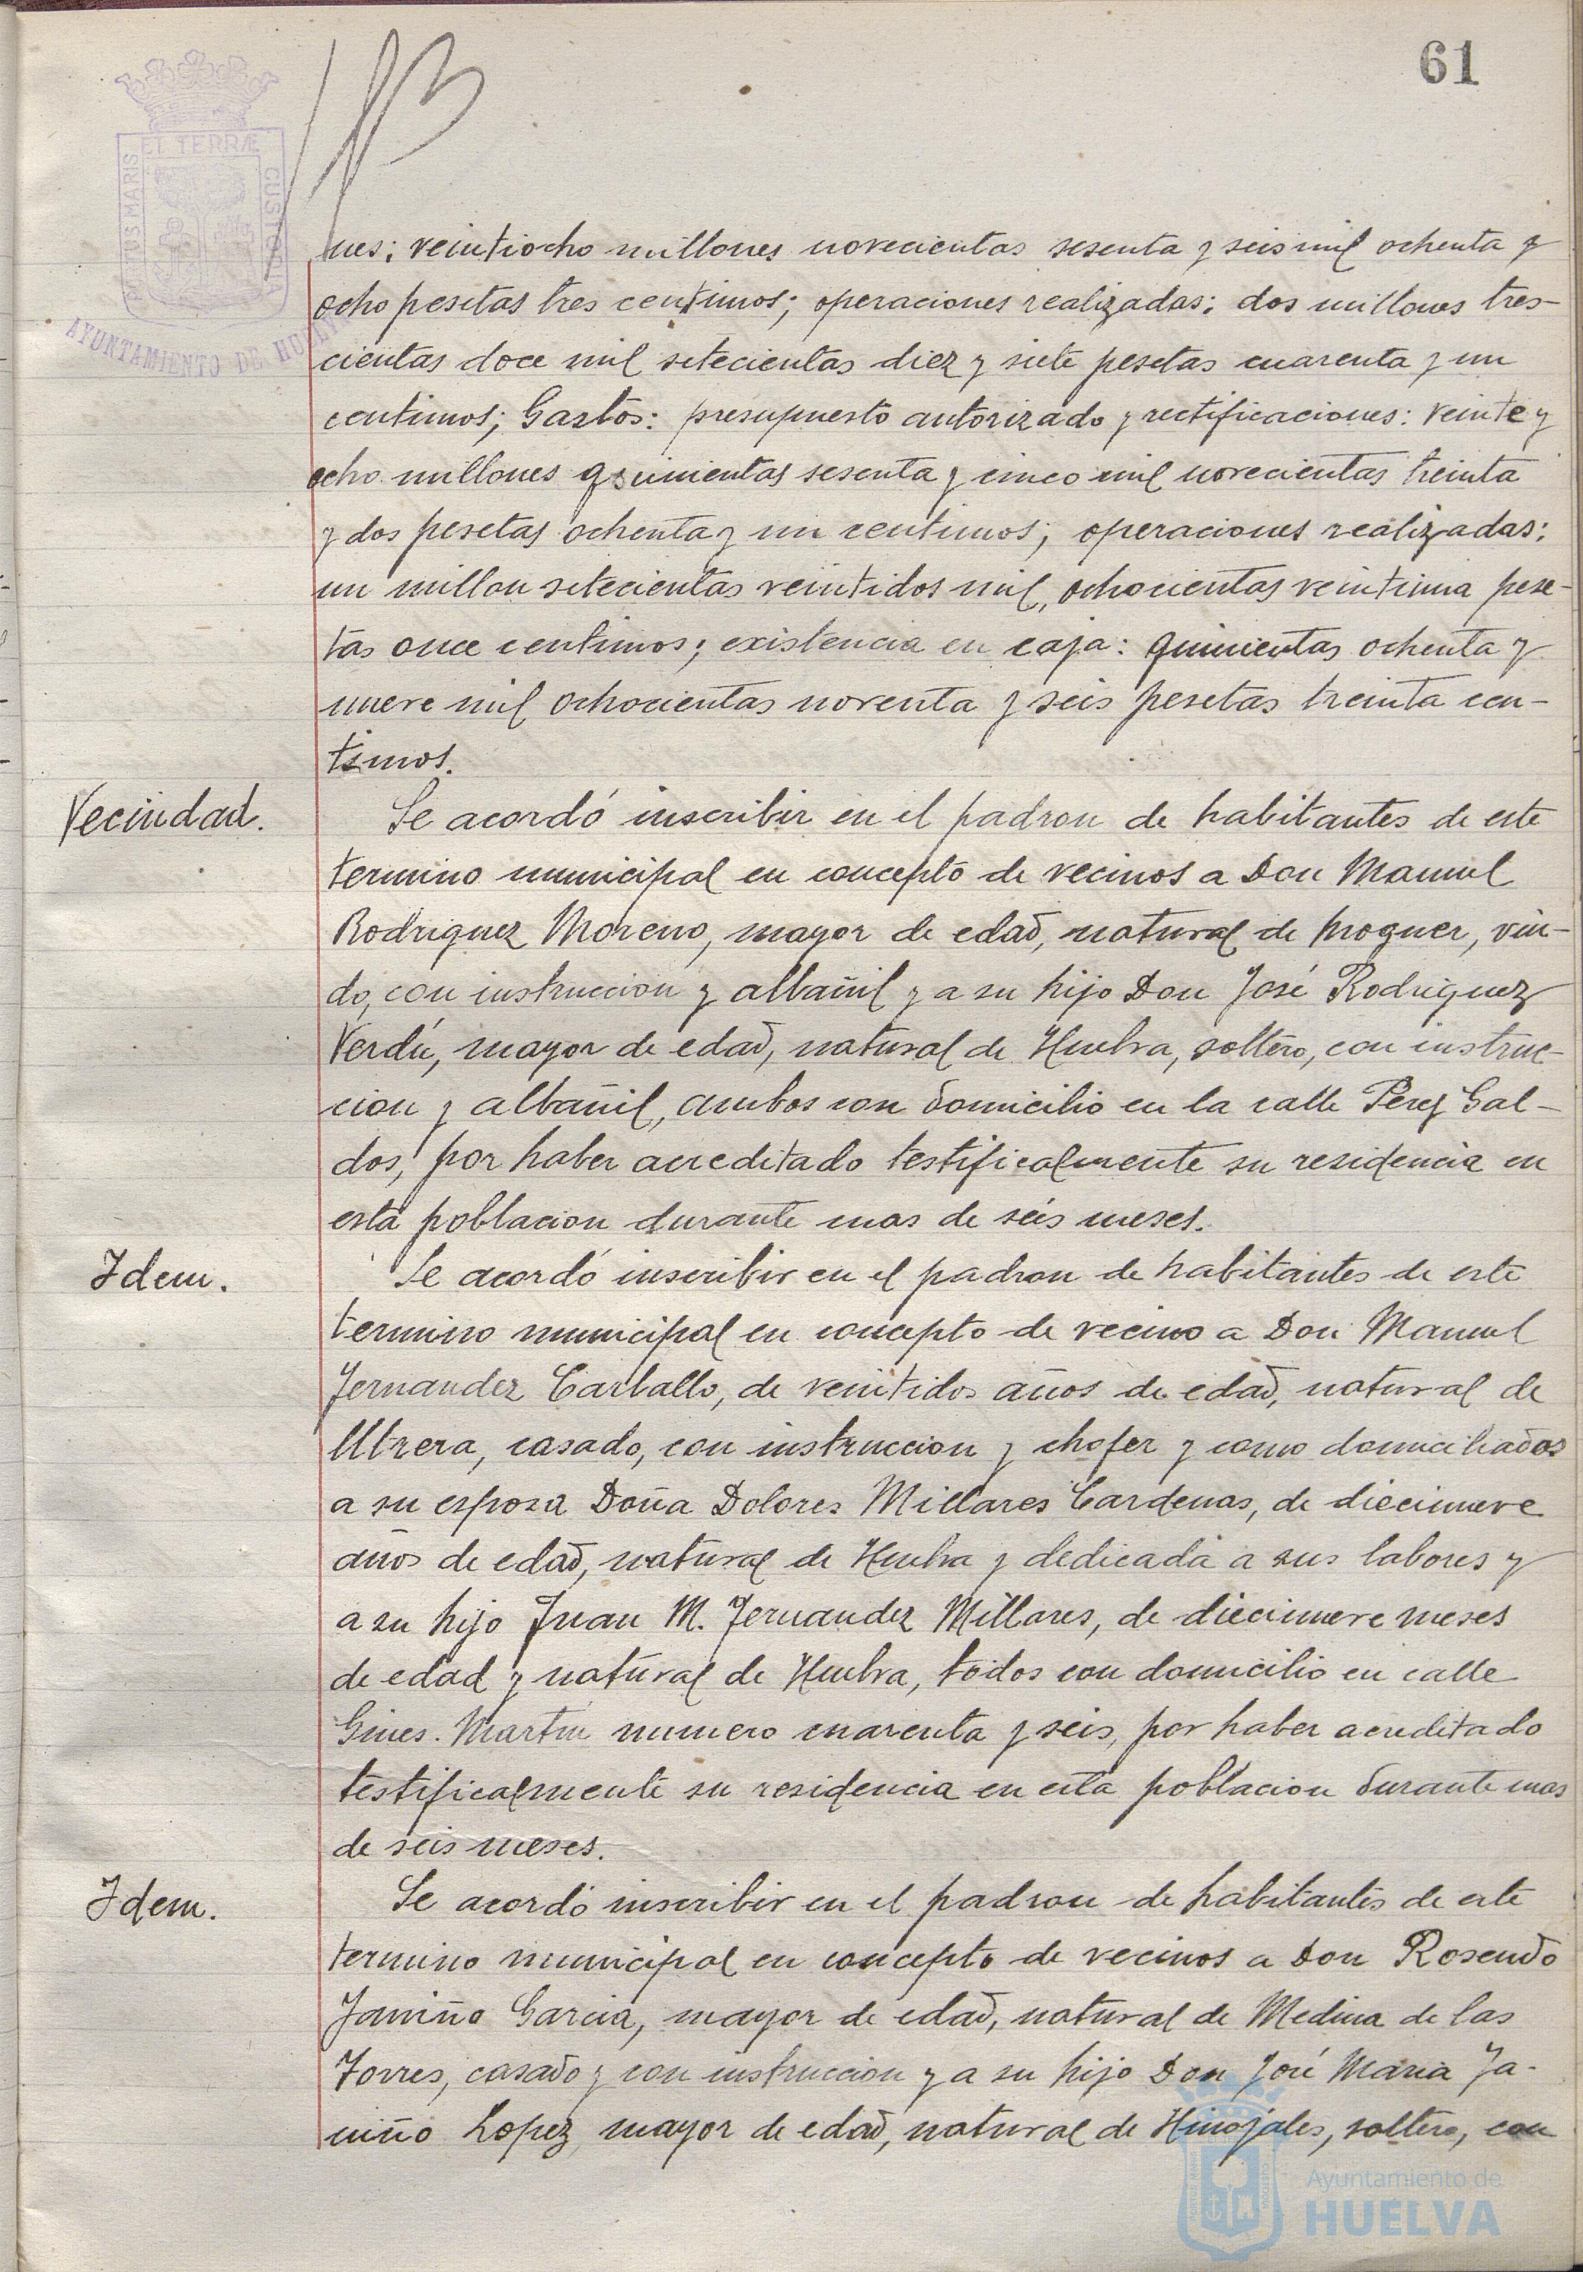 61
PORTUS MARIS
ET TERRÆ
CUSTODIA
AYUNTAMIENTO DE HUELVA
nes: veintiocho millones novecientas sesenta y seis mil ochenta y
ocho pesetas tres centimos; operaciones realizadas: dos millones tres-
cientas doce mil setecientas diez y siete pesetas cuarenta y un
centimos; Gastos: presupuesto autorizado y rectificaciones: veinte y
ocho millones quinientas sesenta y cinco mil novecientas treinta
y dos pesetas ochenta y un centimos; operaciones realizadas:
un millon setecientas veintidos mil, ochocientas veintiuna pese-
tas once centimos; existencia en caja: quinientas ochenta y
nueve mil ochocientas noventa y seis pesetas treinta cen-
timos.
Vecindad.
Se acordó inscribir en el padron de habitantes de este
termino municipal en concepto de vecinos a Don Manuel
Rodriguez Moreno, mayor de edad, natural de Moguer, viu-
do, con instruccion y albañil y a su hijo Don José Rodriguez
Verdú, mayor de edad, natural de Huelva, soltero, con instruc-
cion y albañil, ambos con domicilio en la calle Pérez Gal-
dos, por haber acreditado testificalmente su residencia en
esta poblacion durante mas de seis meses.
Idem.
Se acordó inscribir en el padron de habitantes de este
termino municipal en concepto de vecino a Don Manuel
Fernandez Carballo, de veintidos años de edad, natural de
Utrera, casado, con instruccion y chofer y como domiciliados
a su esposa Doña Dolores Millares Cardenas, de diecinueve
años de edad, natural de Huelva y dedicada a sus labores y
a su hijo Juan M. Fernandez Millares, de diecinueve meses
de edad y natural de Huelva, todos con domicilio en calle
Gines Martín numero cuarenta y seis, por haber acreditado
testificalmente su residencia en esta poblacion durante mas
de seis meses.
Idem.
Se acordó inscribir en el padron de habitantes de este
termino municipal en concepto de vecinos a Don Rosendo
Janiño Garcia, mayor de edad, natural de Medina de las
Torres, casado y con instruccion y a su hijo Don José Maria Ja-
niño Lopez, mayor de edad, natural de Hinojales, soltero, con
Ayuntamiento de
HUELVA